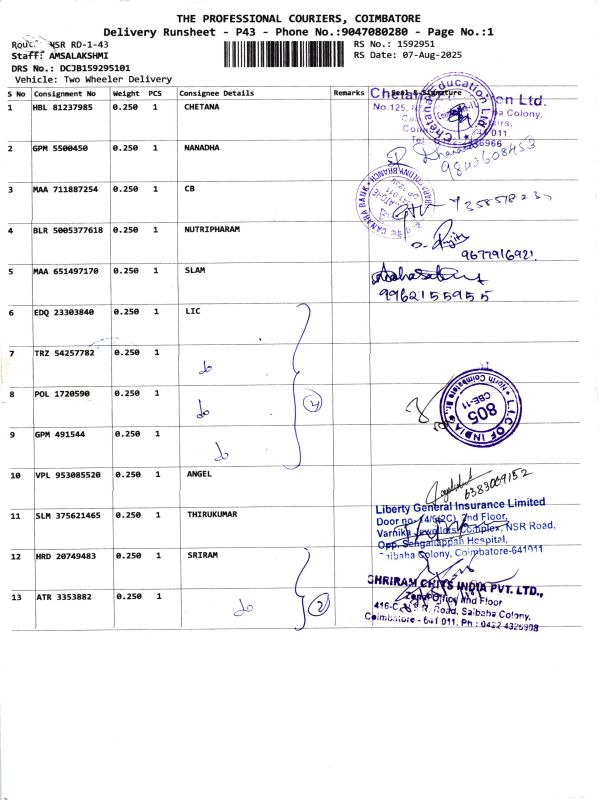 THE PROFESSIONAL COURIERS, COIMBATORE
Delivery Runsheet - P43 - Phone No.:9047080280 - Page No.:1
NSR RD-1-43
RS No.: 1592951
Staff: AMSALAKSHMI
RS Date: 07-Aug-2025
DRS No.: DCJB159295101
Vehicle: Two Wheeler Delivery
S No Consignment No Weight PCS Consignee Details Remarks Seal & Signature
1 HBL 81237985 0.250 1 CHETANA
No.125,
011.
2 GPM 5500450 0.250 1 NANADHA
9843608453
3 MAA 711887254 0.250 1 CB
CANARA BANK
4 BLR 5005377618 0.250 1 NUTRIPHARAM
9677916921
5 MAA 651497170 0.250 1 SLAM
9962155955
6 EDQ 23303840 0.250 1 LIC
7 TRZ 54257782 0.250 1 do
8 POL 1720590 0.250 1 do
4
L.I.C OF INDIA
North Coimbatore Br.
805
CBE-11
9 GPM 491544 0.250 1 do
10 VPL 953085520 0.250 1 ANGEL
6383069152
11 SLM 375621465 0.250 1 THIRUKUMAR
Liberty General Insurance Limited
2nd Floor,
Varnika Jewellers Complex, NSR Road,
Opp. Sengaliappan Hospital,
Saibaba Colony, Coimbatore-641011
12 HRD 20749483 0.250 1 SRIRAM
13 ATR 3353882 0.250 1 do
2
SHRIRAM CHITS INDIA PVT. LTD.,
Zonal Office 2nd Floor
Road, Saibaba Colony,
Coimbatore - 641 011. Ph : 0422 4326998